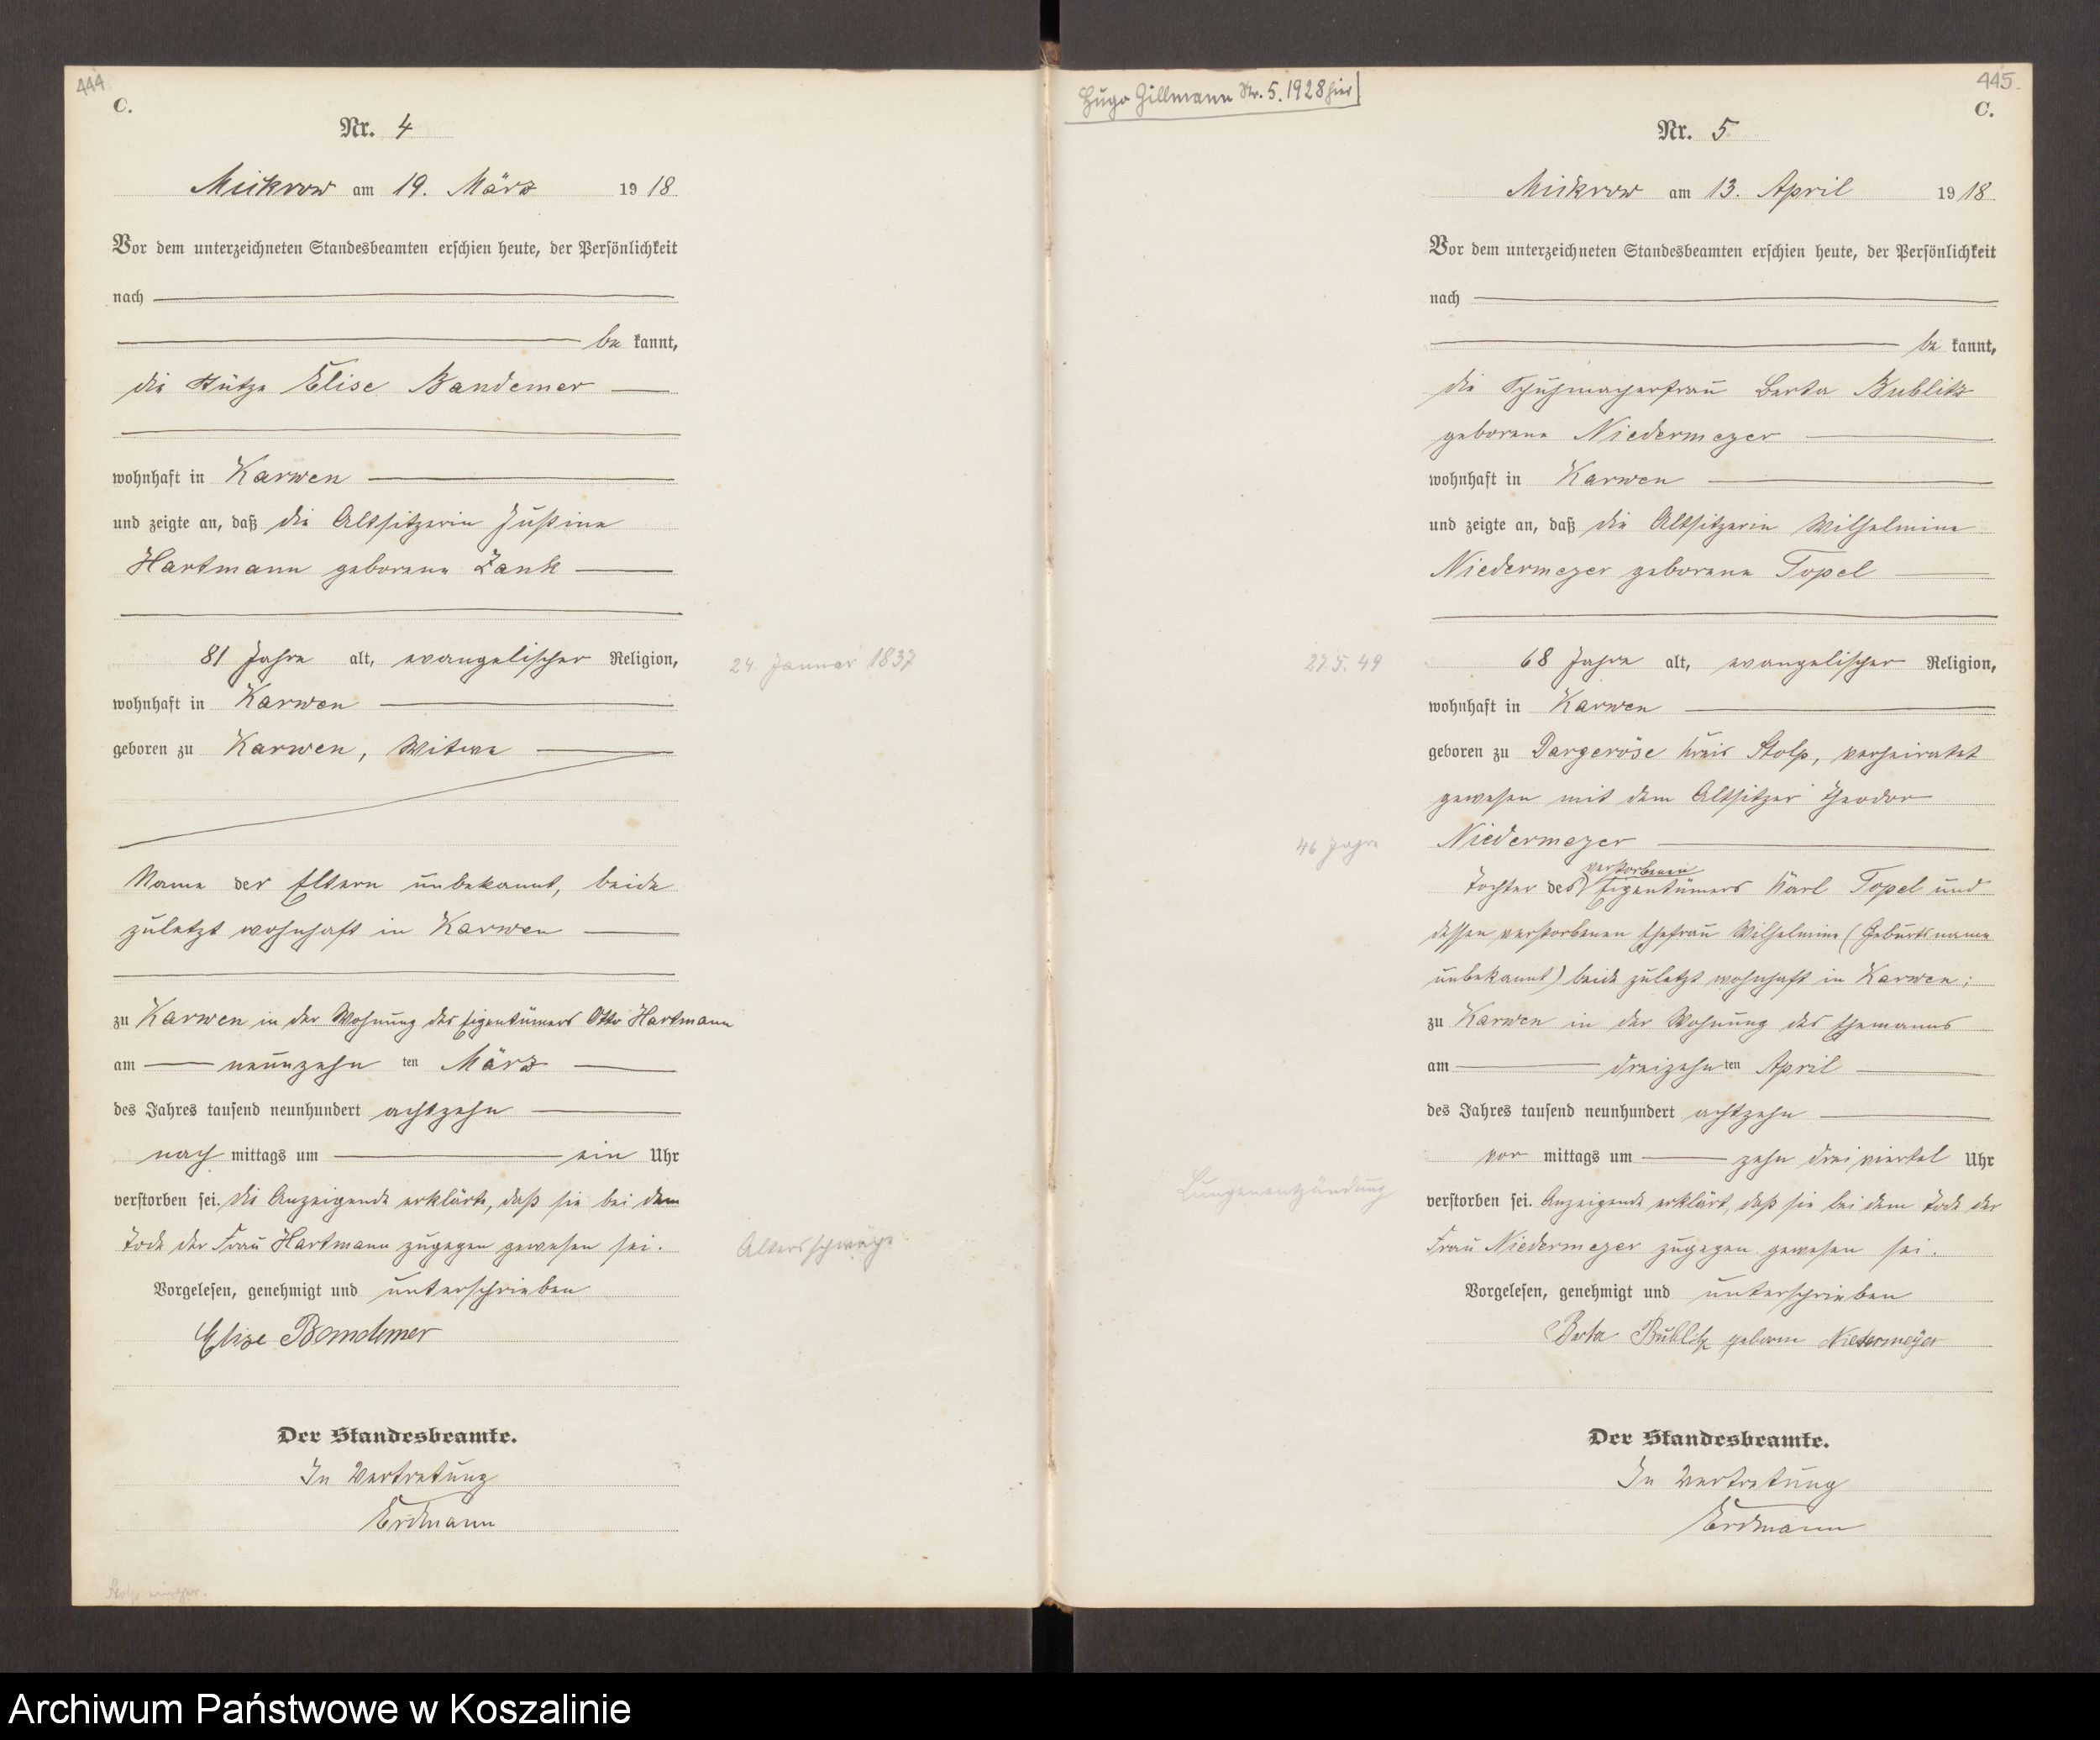 444
C.
Nr. 4
Mickrow am 19. März 1918
Vor dem unterzeichneten Standesbeamten erschien heute, der Persönlichkeit
nach
be kannt,
die Stütze Elise Bandemer
wohnhaft in Karwen
und zeigte an, daß die Altsitzerin Justine
Hartmann geborene Zank
81 Jahre alt, evangelischer Religion,
24. Januar 1837
wohnhaft in Karwen
geboren zu Karwen, Witwe
Name der Eltern unbekannt, beide
zuletzt wohnhaft in Karwen
zu Karwen in der Wohnung des Eigentümers Otto Hartmann
am neunzehn ten März
des Jahres tausend neunhundert achtzehn
nach mittags um ein Uhr
verstorben sei. Die Anzeigende erklärte, daß sie bei dem
Tode der Frau Hartmann zugegen gewesen sei.
Altersschwäche
Vorgelesen, genehmigt und unterschrieben
Elise Bandemer
Der Standesbeamte.
In Vertretung
Erdmann
Hugo Gillmann Nr. 5. 1928 hier
445.
C.
Nr. 5
Mickrow am 13. April 1918
Vor dem unterzeichneten Standesbeamten erschien heute, der Persönlichkeit
nach
be kannt,
die Schuhmacherfrau Berta Bublitz
geborene Niedermeyer
wohnhaft in Karwen
und zeigte an, daß die Altsitzerin Wilhelmine
Niedermeyer geborene Topel
27.5.49
68 Jahre alt, evangelischer Religion,
wohnhaft in Karwen
geboren zu Dargeröse Kreis Stolp, verheiratet
gewesen mit dem Altsitzer Theodor
46 Jahre
Niedermeyer
verstorbenen
Tochter des Eigentümers Karl Topel und
dessen verstorbenen Ehefrau Wilhelmine (Geburtsname
unbekannt) beide zuletzt wohnhaft in Karwen;
zu Karwen in der Wohnung des Ehemanns
am dreizehn ten April
des Jahres tausend neunhundert achtzehn
vor mittags um zehn dreiviertel Uhr
Lungenentzündung
verstorben sei. Anzeigende erklärt, daß sie bei dem Tode der
Frau Niedermeyer zugegen gewesen sei.
Vorgelesen, genehmigt und unterschrieben
Berta Bublitz geborne Niedermeÿer
Der Standesbeamte.
In Vertretung
Erdmann
Archiwum Państwowe w Koszalinie